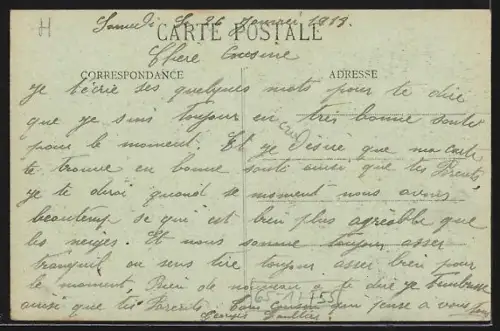 H
Samedi Le 26 Janvier 1918.
CARTE POSTALE
Chere Cousine
CORRESPONDANCE ADRESSE
Je t'écrie ses quelques mots pour te dire
que je suis toujour en très bonne santé
pour le moment. Et je Désire que ma carte
te trouve en bonne santé ainsi que tes Parents,
je te dirai quand se moment nous avons
beautemp se qui est bien plus agréable que
les neiges. Et nous somme toujour asser
tranquil on sens tire toujour asser bien pour
le moment. Rien de nouveau a te dire je t'embrasse
ainsi que tes Parents. Ton Cousin qui pense a vous tous
Georges